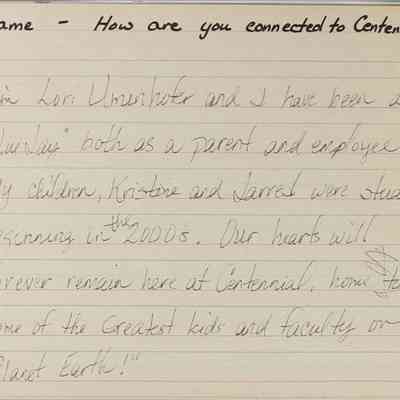 ame - How are you connected to Centen
I'm Lori Umenhofer and I have been a
" both as a parent and employee
y children, Kristine and Jarred were stud
eginning in the 2000s. Our hearts will
orever remain here at Centennial, home to
ome of the Greatest kids and faculty on
Planet Earth!"